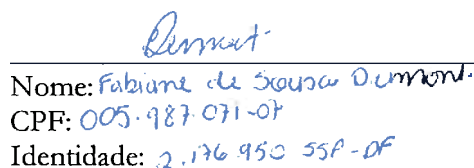 Dumont
Nome: Fabiane de Sousa Dumont.
CPF: 005.987.071-07
Identidade: 2.176.950 SSP-DF